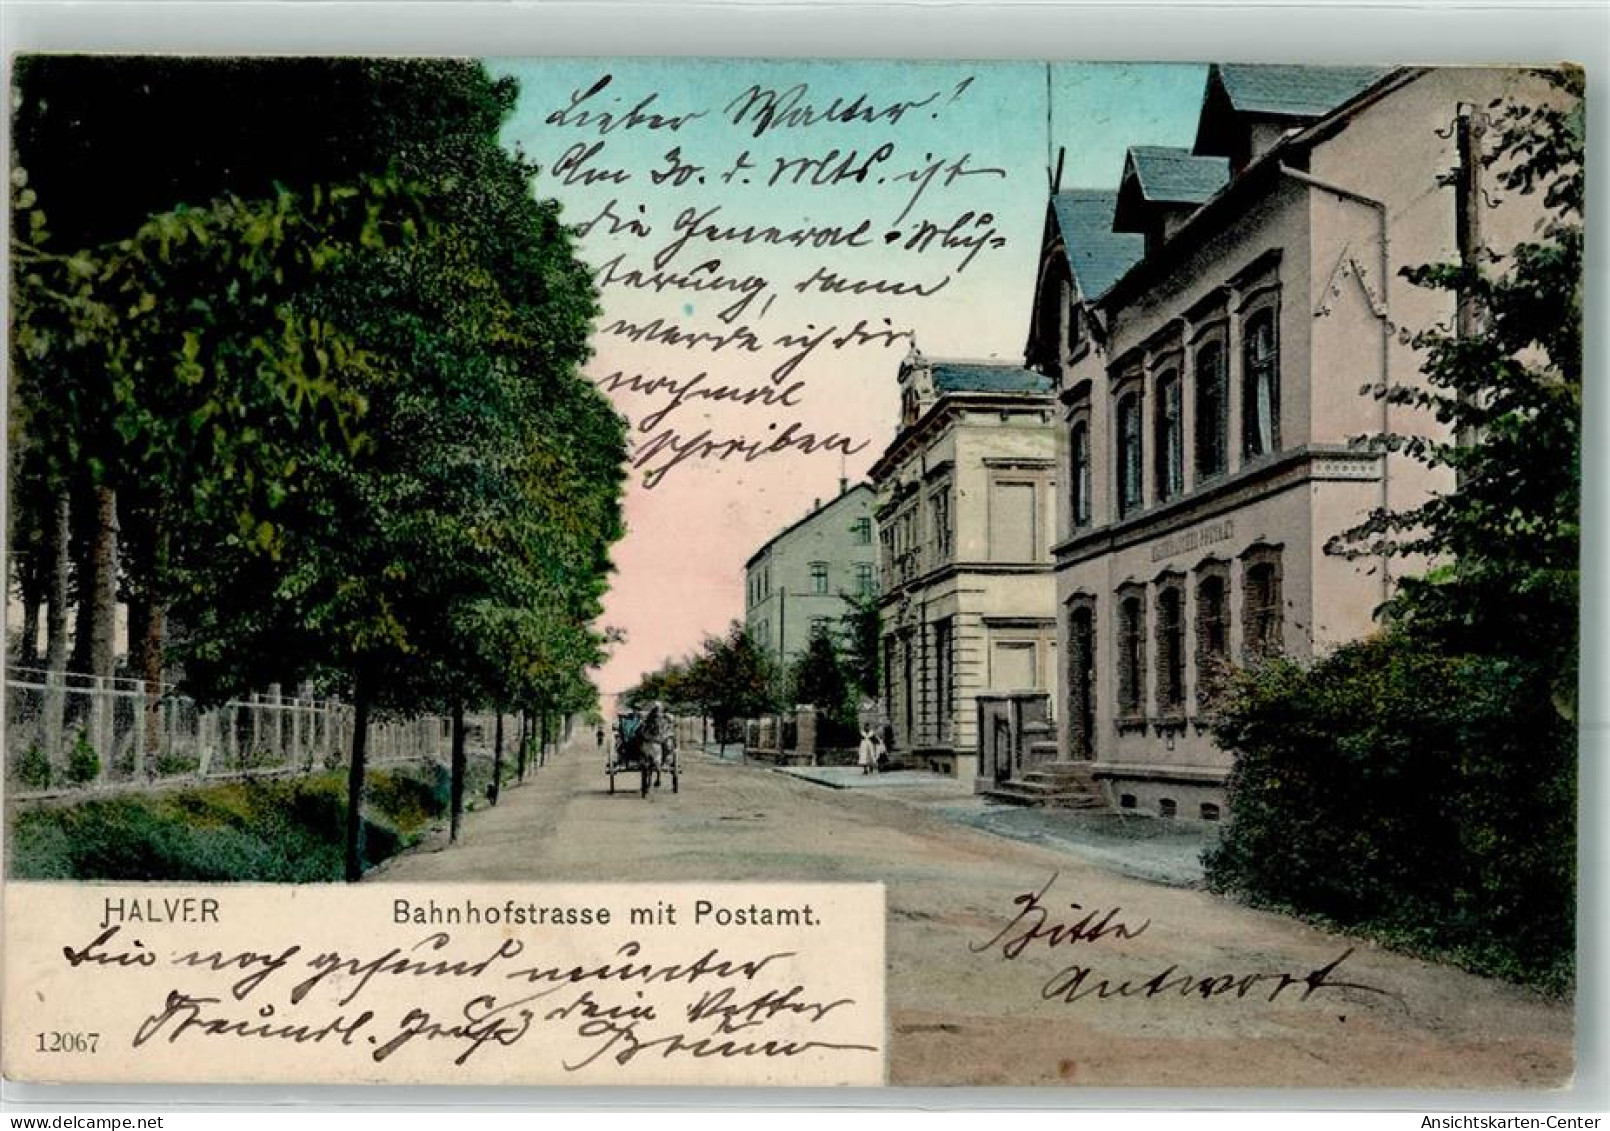 Lieber Walter!
Am 30. d. Mts. ist
die General-Mus-
terung, dann
werde ich dir
nochmal
schreiben
KAISERLICHES POSTAMT
HALVER Bahnhofstrasse mit Postamt.
Bin noch gesund munter
Freundl. Gruß dein Vetter
Bruno
12067
Bitte
Antwort
Ansichtskarten-Center